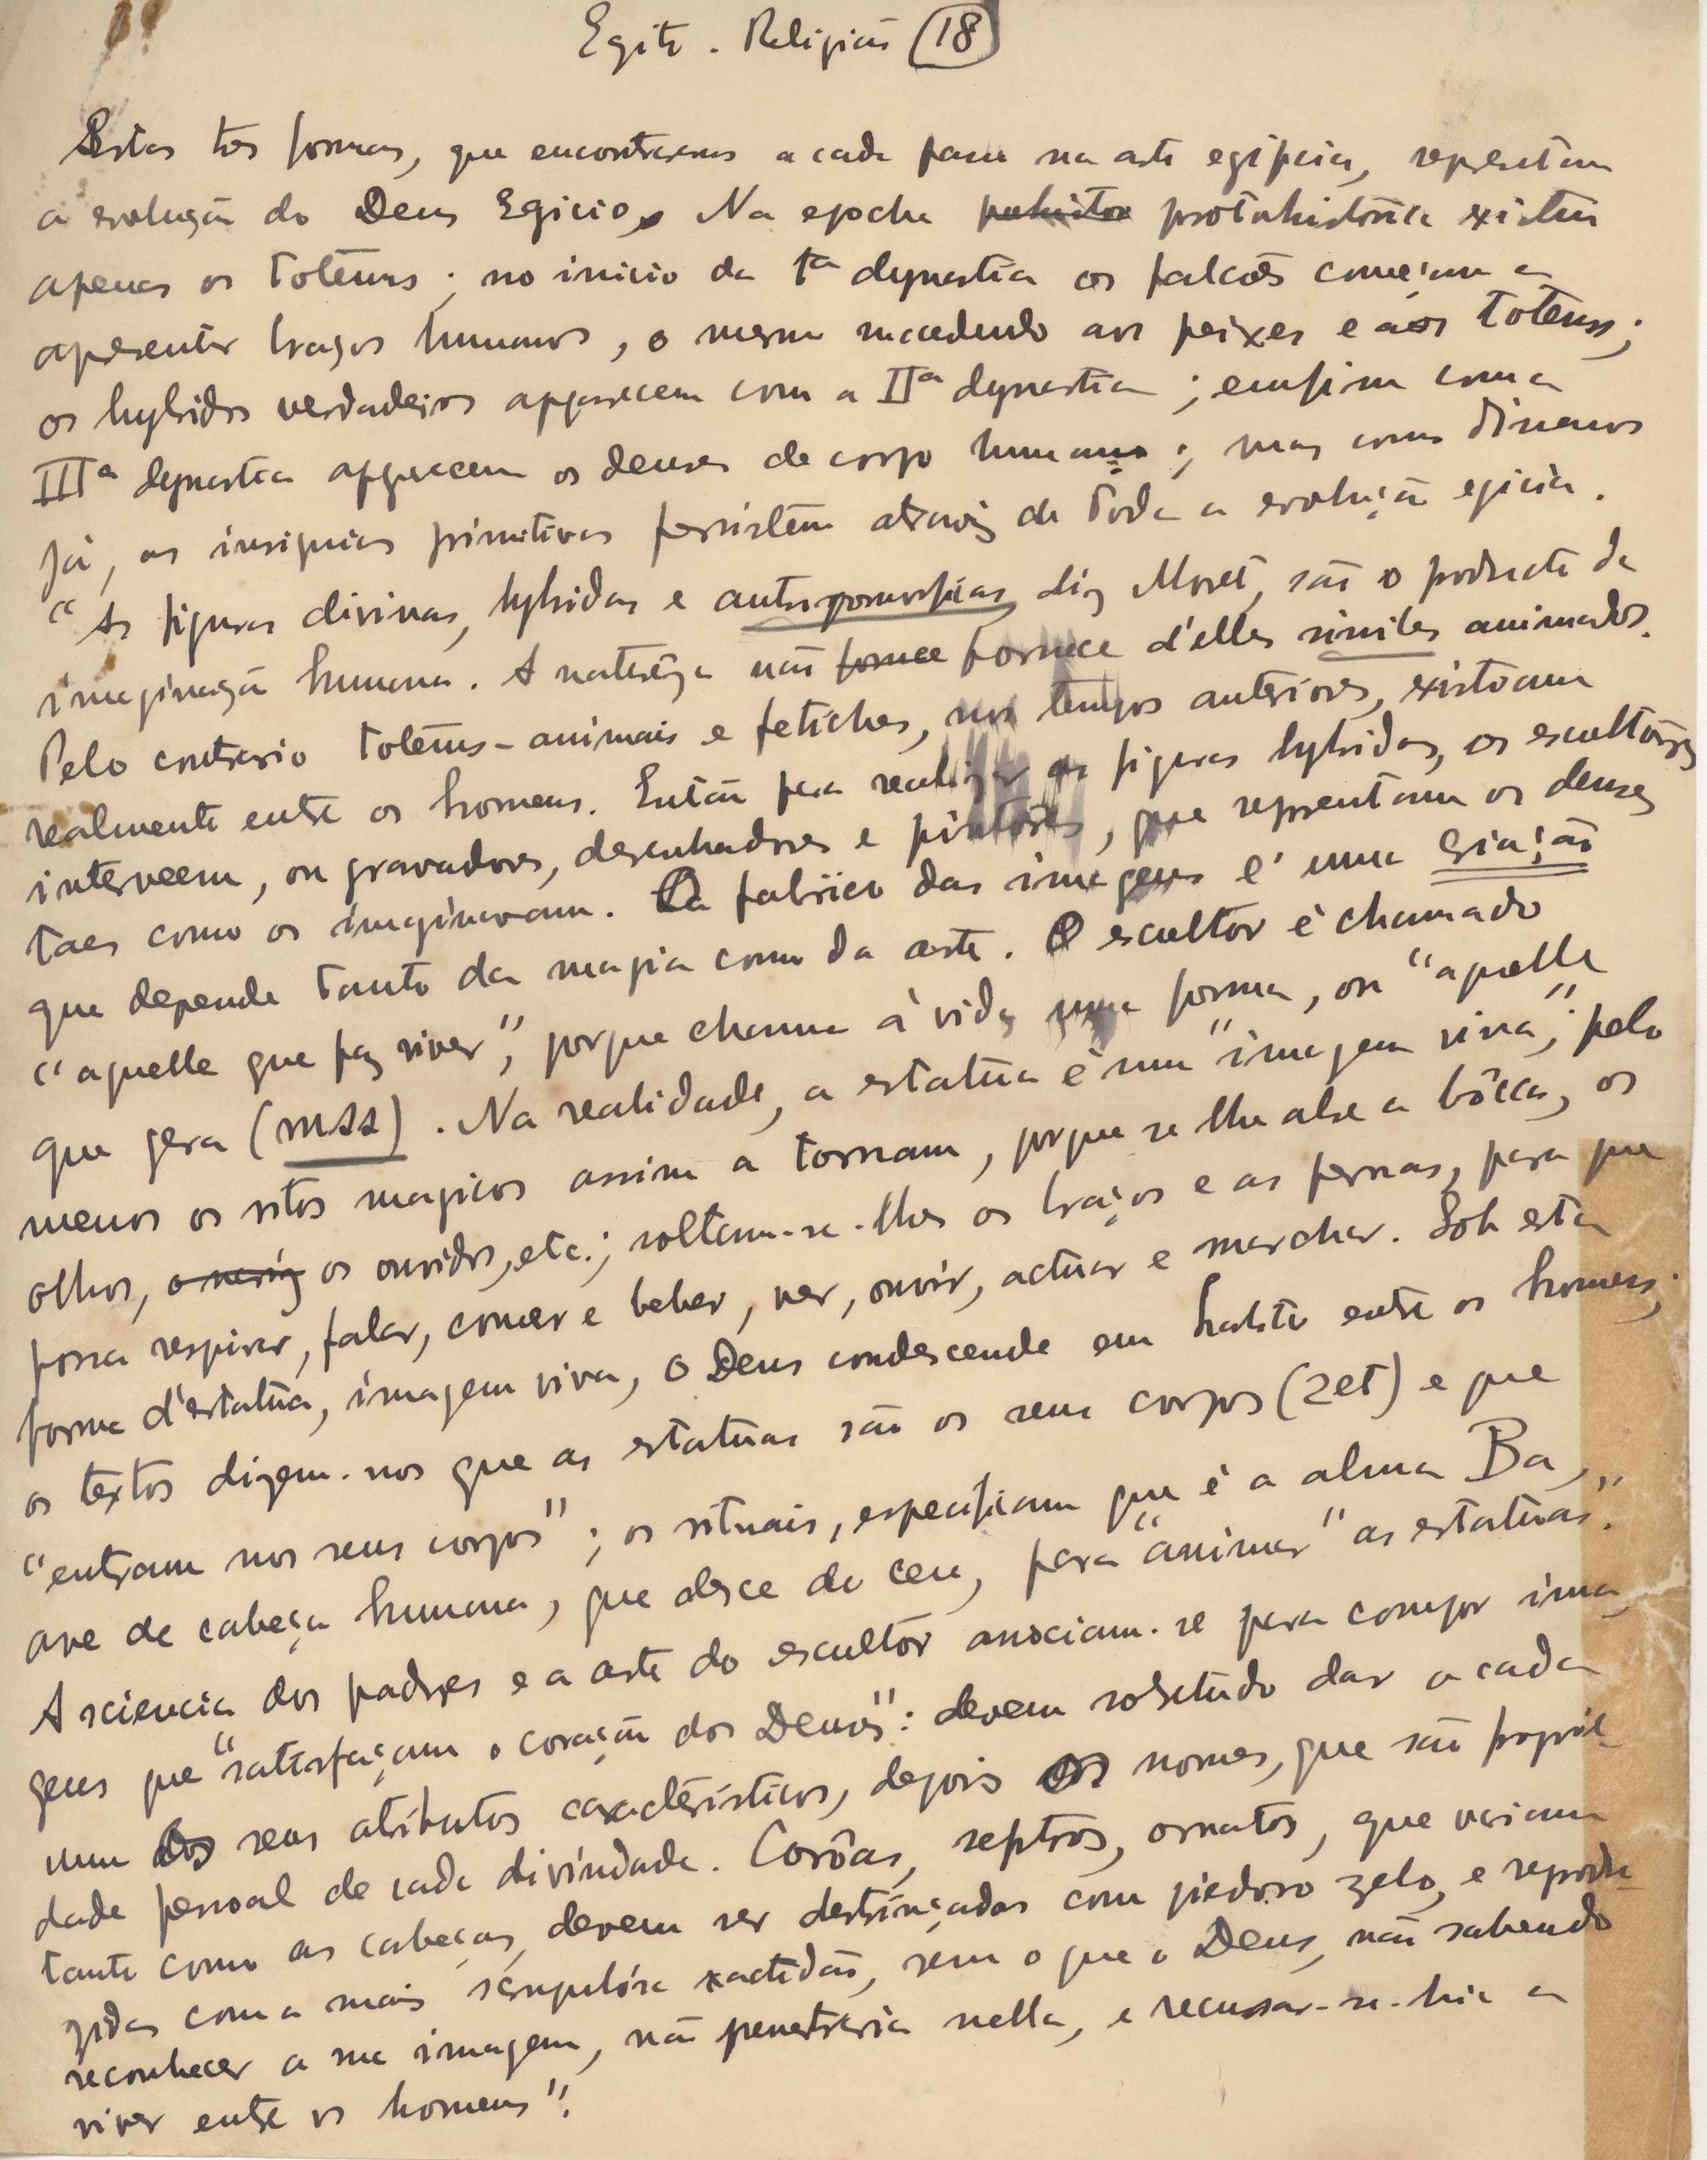 Egito. Religião (18)
Estas tres formas, que encontramos a cada passo na arte egipcia, representam
a evolução do Deus Egicio. Na epocha prehistor protohistórica existem
apenas os totems; no inicio da 1ª dynastia os falcões começam a
apresentar braços humanos, o mesmo succedendo aos peixes e aos totems;
os hybridos verdadeiros apparecem com a IIª dynastia; emfim com a
IIIª dynastia apparecem os deuses de corpo humano; mas como dissemos
já, as insignias primitivas persistem através de toda a evolução egicia.
"As figuras divinas, hybridas e antropomorficas, diz Moret, são o producto da
imaginação humana. A naturêza não fornece fornece d'elles similes animados.
Pelo contrario totems-animais e fetiches, nos tempos anteriores, existoam
realmente entre os homens. Então para realizar as figuras hybridas, os escultôres
interveem, ou gravadores, desenhadores e pintôres, que representam os deuses
taes como os imaginavam. O fabrico das imagens é uma criação
que depende tanto da magia como da arte. O escultor é chamado
"aquelle que faz viver", porque chama á vida uma forma, ou "aquelle
que gera (mss). Na realidade, a estatua é uma "imagem viva"; pelo
menos os ritos magicos assim a tornam, porque se lhe abre a bôcca, os
olhos, o nariz os ouvidos, etc.; soltam-se-lhes os braços e as pernas, para que
possa respirar, falar, comer e beber, ver, ouvir, actuar e marchar. Sob esta
forma d'estatua, imagem viva, o Deus condescende em habitar entre os homens;
os textos dizem-nos que as estatuas são os seus corpos (zet) e que
"entram nos seus corpos"; os rituais, especificam que é a alma Ba,
ave de cabeça humana, que desce do ceu, para "animar" as estatuas".
A sciencia dos padres e a arte do escultor associam-se para compor ima
gens que "satisfaçam o coração dos Deuses": devem sobretudo dar a cada
um dos seus atributos característicos, depois os nomes, que são proprie
dade pessoal de cada divindade. Corôas, septros, ornatos, que variam
tanto como as cabeças, devem ser destrinçados com piedoso zelo, e reprodu-
zidas com a mais scrupulósa xactidão, sem o que o Deus, não sabendo
reconhecer a sua imagem, não penetraria nella, e recusar-se-hia a
viver entre os homens".